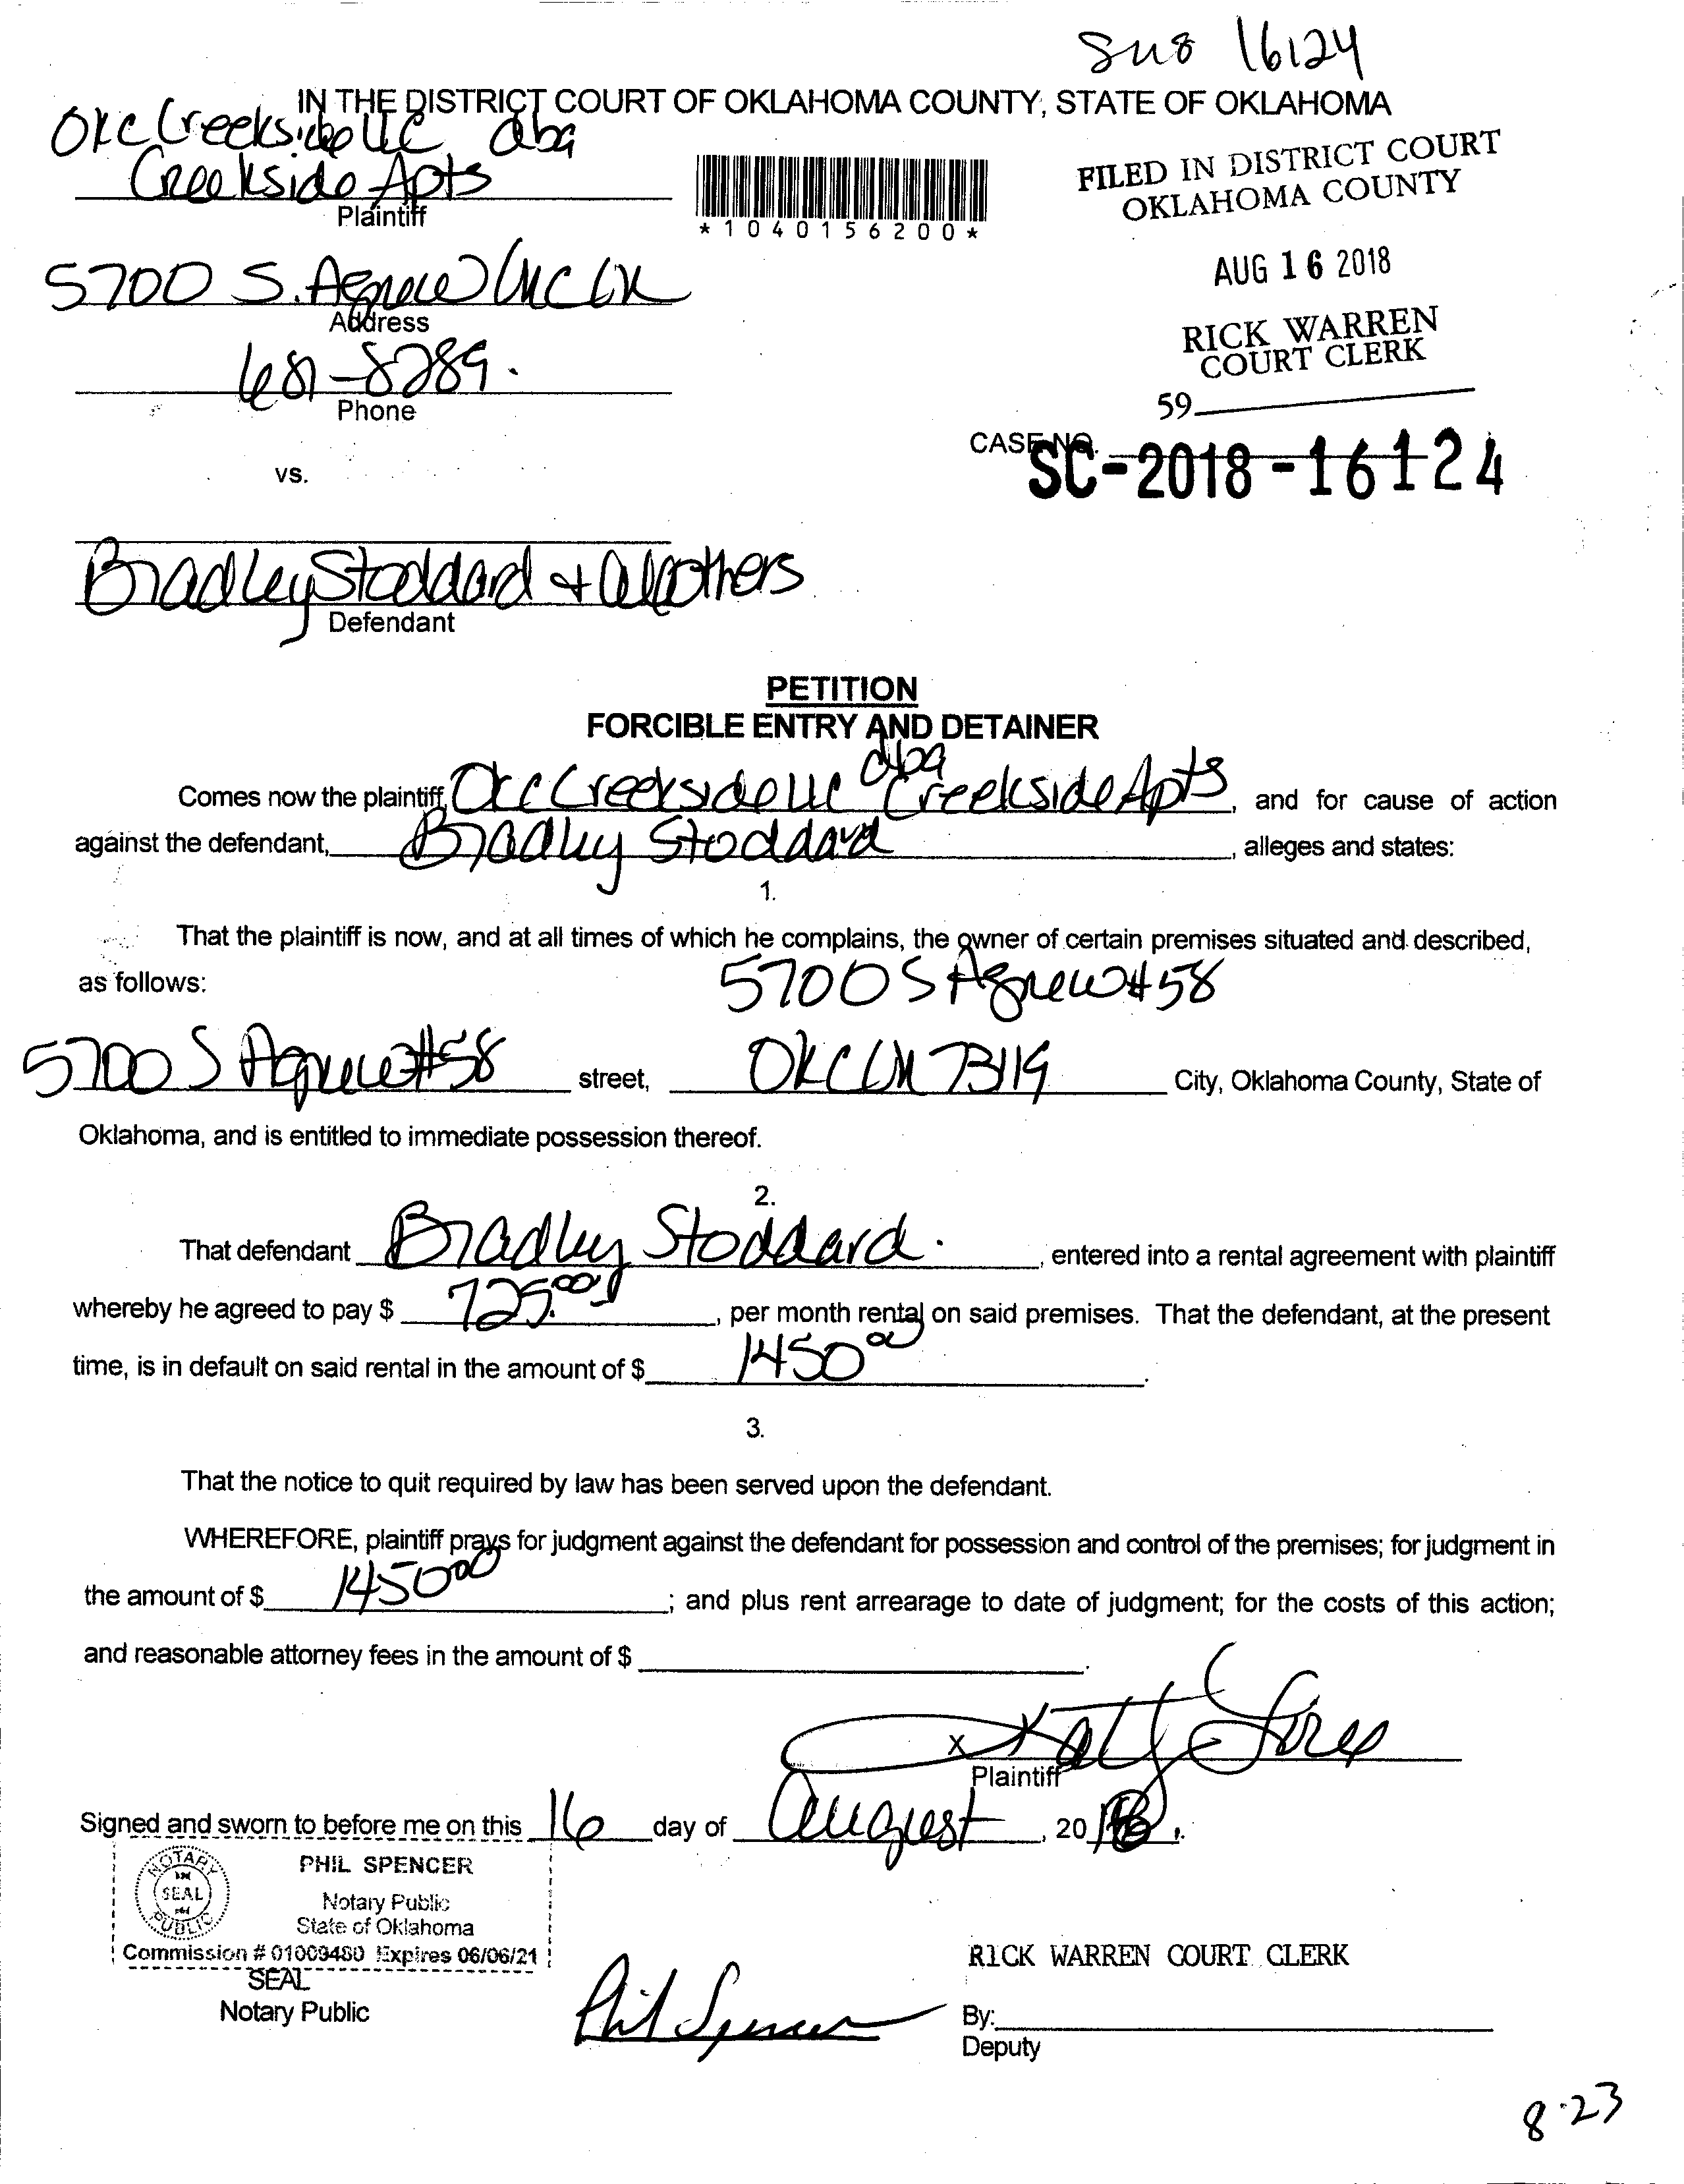 16124
IN THE DISTRICT COURT OF OKLAHOMA COUNTY, STATE OF OKLAHOMA
OKC Creekside LLC dba
Creekside Apts
Plaintiff
*1040156200*
FILED IN DISTRICT COURT
OKLAHOMA COUNTY
AUG 16 2018
RICK WARREN
COURT CLERK
59
5700 S. Agnew OKC OK
Address
681-8289.
Phone
vs.
CASE NO.
SC-2018-16124
Bradley Stoddard + all others
Defendant
PETITION
FORCIBLE ENTRY AND DETAINER
Comes now the plaintiff, OKC Creekside LLC dba Creekside Apts, and for cause of action
against the defendant, Bradley Stoddard, alleges and states:
1.
That the plaintiff is now, and at all times of which he complains, the owner of certain premises situated and described,
as follows: 5700 S Agnew #58
5700 S Agnew #58 street, OKC OK 73119 City, Oklahoma County, State of
Oklahoma, and is entitled to immediate possession thereof.
2.
That defendant Bradley Stoddard., entered into a rental agreement with plaintiff
whereby he agreed to pay $ 725.00, per month rental on said premises. That the defendant, at the present
time, is in default on said rental in the amount of $ 1450 00.
3.
That the notice to quit required by law has been served upon the defendant.
WHEREFORE, plaintiff prays for judgment against the defendant for possession and control of the premises; for judgment in
the amount of $ 1450 00; and plus rent arrearage to date of judgment; for the costs of this action;
and reasonable attorney fees in the amount of $
X
Plaintiff
Signed and sworn to before me on this 16 day of August, 2018.
NOTARY PUBLIC
SEAL
PHIL SPENCER
Notary Public
State of Oklahoma
Commission # 01009480 Expires 06/06/21
SEAL
Notary Public
Phil Spencer
RICK WARREN COURT CLERK
By:
Deputy
8-23